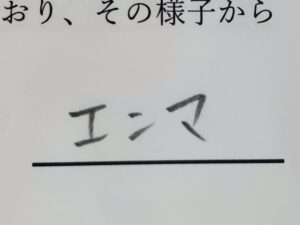 おり、その様子から
エンマ